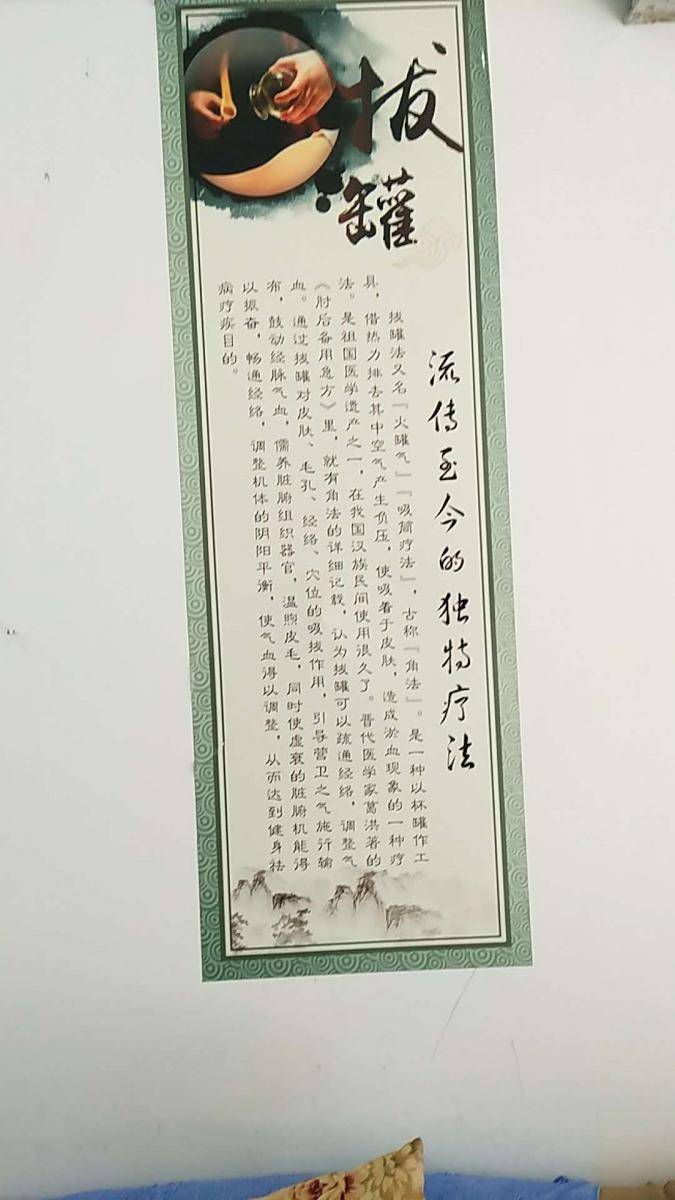 拔罐
流传至今的独特疗法
拔罐法又名『火罐气』『吸筒疗法』，古称『角法』。是一种以杯罐作工
具，借热力排去其中空气产生负压，使吸着于皮肤，造成淤血现象的一种疗
法。是祖国医学遗产之一，在我国汉族民间使用很久了。晋代医学家葛洪著的
《肘后备用急方》里，就有角法的详细记载，认为拔罐可以疏通经络，调整气
血。通过拔罐对皮肤、毛孔、经络、穴位的吸拔作用，引导营卫之气施行输
布，鼓动经脉气血，儒养脏腑组织器官，温煦皮毛，同时使虚衰的脏腑机能得
以振奋，畅通经络，调整机体的阴阳平衡，使气血得以调整，从而达到健身祛
病疗疾目的。